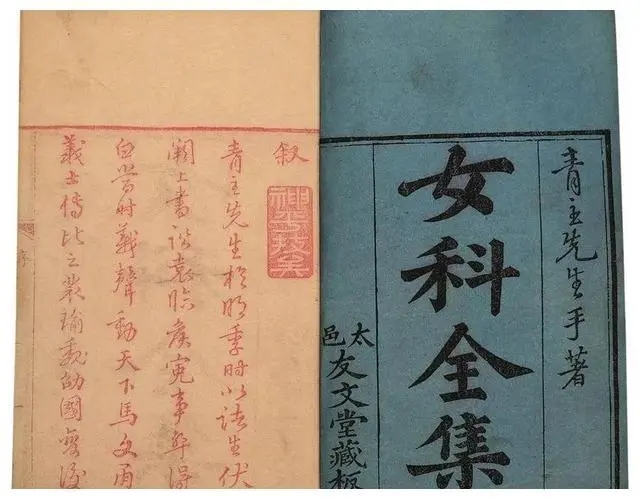 青主先生手著
女科全集
太邑
友文堂藏板
叙
神乎技矣
青主先生於明季時以諸生伏
闕上書訟袁臨侯冤事卒得
白當時義聲動天下馬文甬
義士傳比之裴瑜魏劭國變後
序